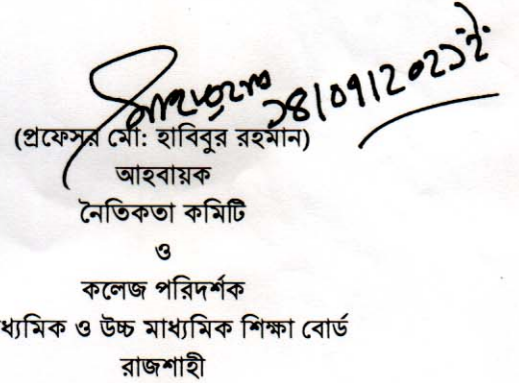 ১৪/০৭/২০২১ইং
(প্রফেসর মো: হাবিবুর রহমান)
আহবায়ক
নৈতিকতা কমিটি
ও
কলেজ পরিদর্শক
ধ্যমিক ও উচ্চ মাধ্যমিক শিক্ষা বোর্ড
রাজশাহী